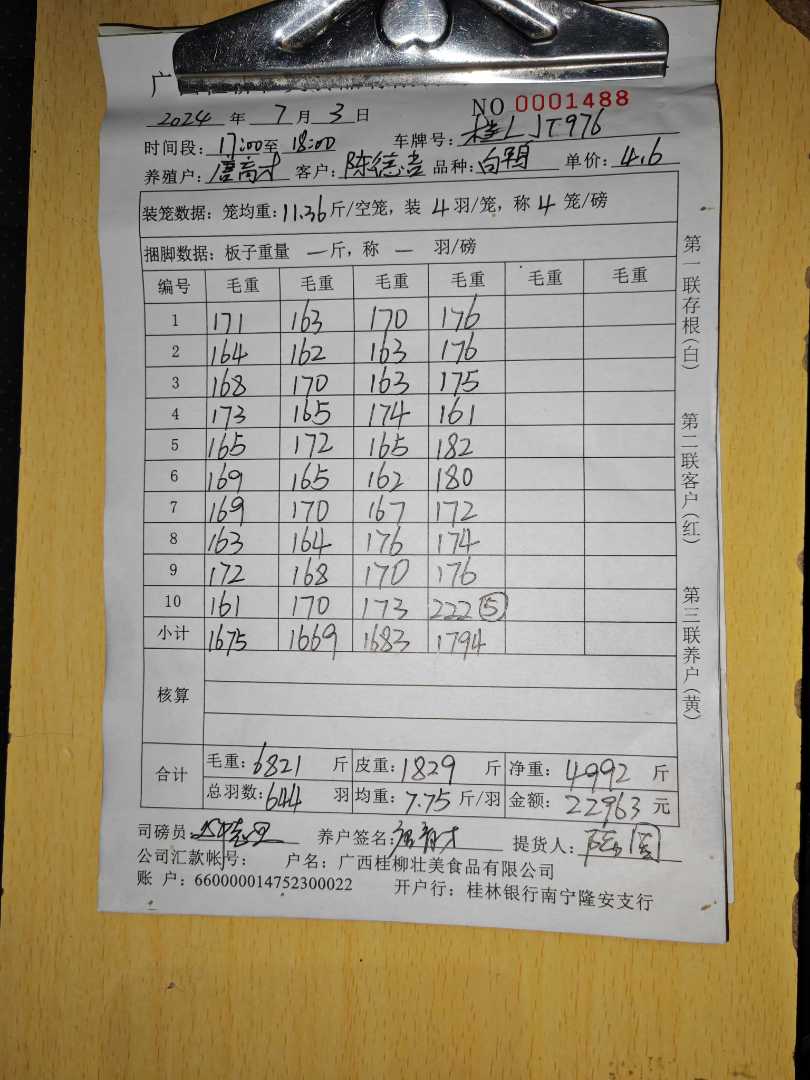 广
2024 年 7 月 3 日 NO 0001488
时间段: 17:00至 18:00 车牌号: 桂LJT976
养殖户: 唐高才 客户: 陈德吉 品种: 白鸭 单价: 4.6
装笼数据: 笼均重: 11.36 斤/空笼, 装 4 羽/笼, 称 4 笼/磅
捆脚数据: 板子重量 — 斤, 称 — 羽/磅
编号 毛重 毛重 毛重 毛重 毛重 毛重
1 171 163 170 176
2 164 162 163 176
3 168 170 163 175
4 173 165 174 161
5 165 172 165 182
6 169 165 162 180
7 169 170 167 172
8 163 164 176 174
9 172 168 170 176
10 161 170 173 222 ⑤
小计 1675 1669 1683 1794
核算
合计 毛重: 6821 斤 皮重: 1829 斤 净重: 4992 斤
总羽数: 644 羽 均重: 7.75 斤/羽 金额: 22963 元
司磅员: 养户签名: 唐高才 提货人:
公司汇款帐号: 户名: 广西桂柳壮美食品有限公司
账 户: 660000014752300022 开户行: 桂林银行南宁隆安支行
第一联存根(白) 第二联客户(红) 第三联养户(黄)